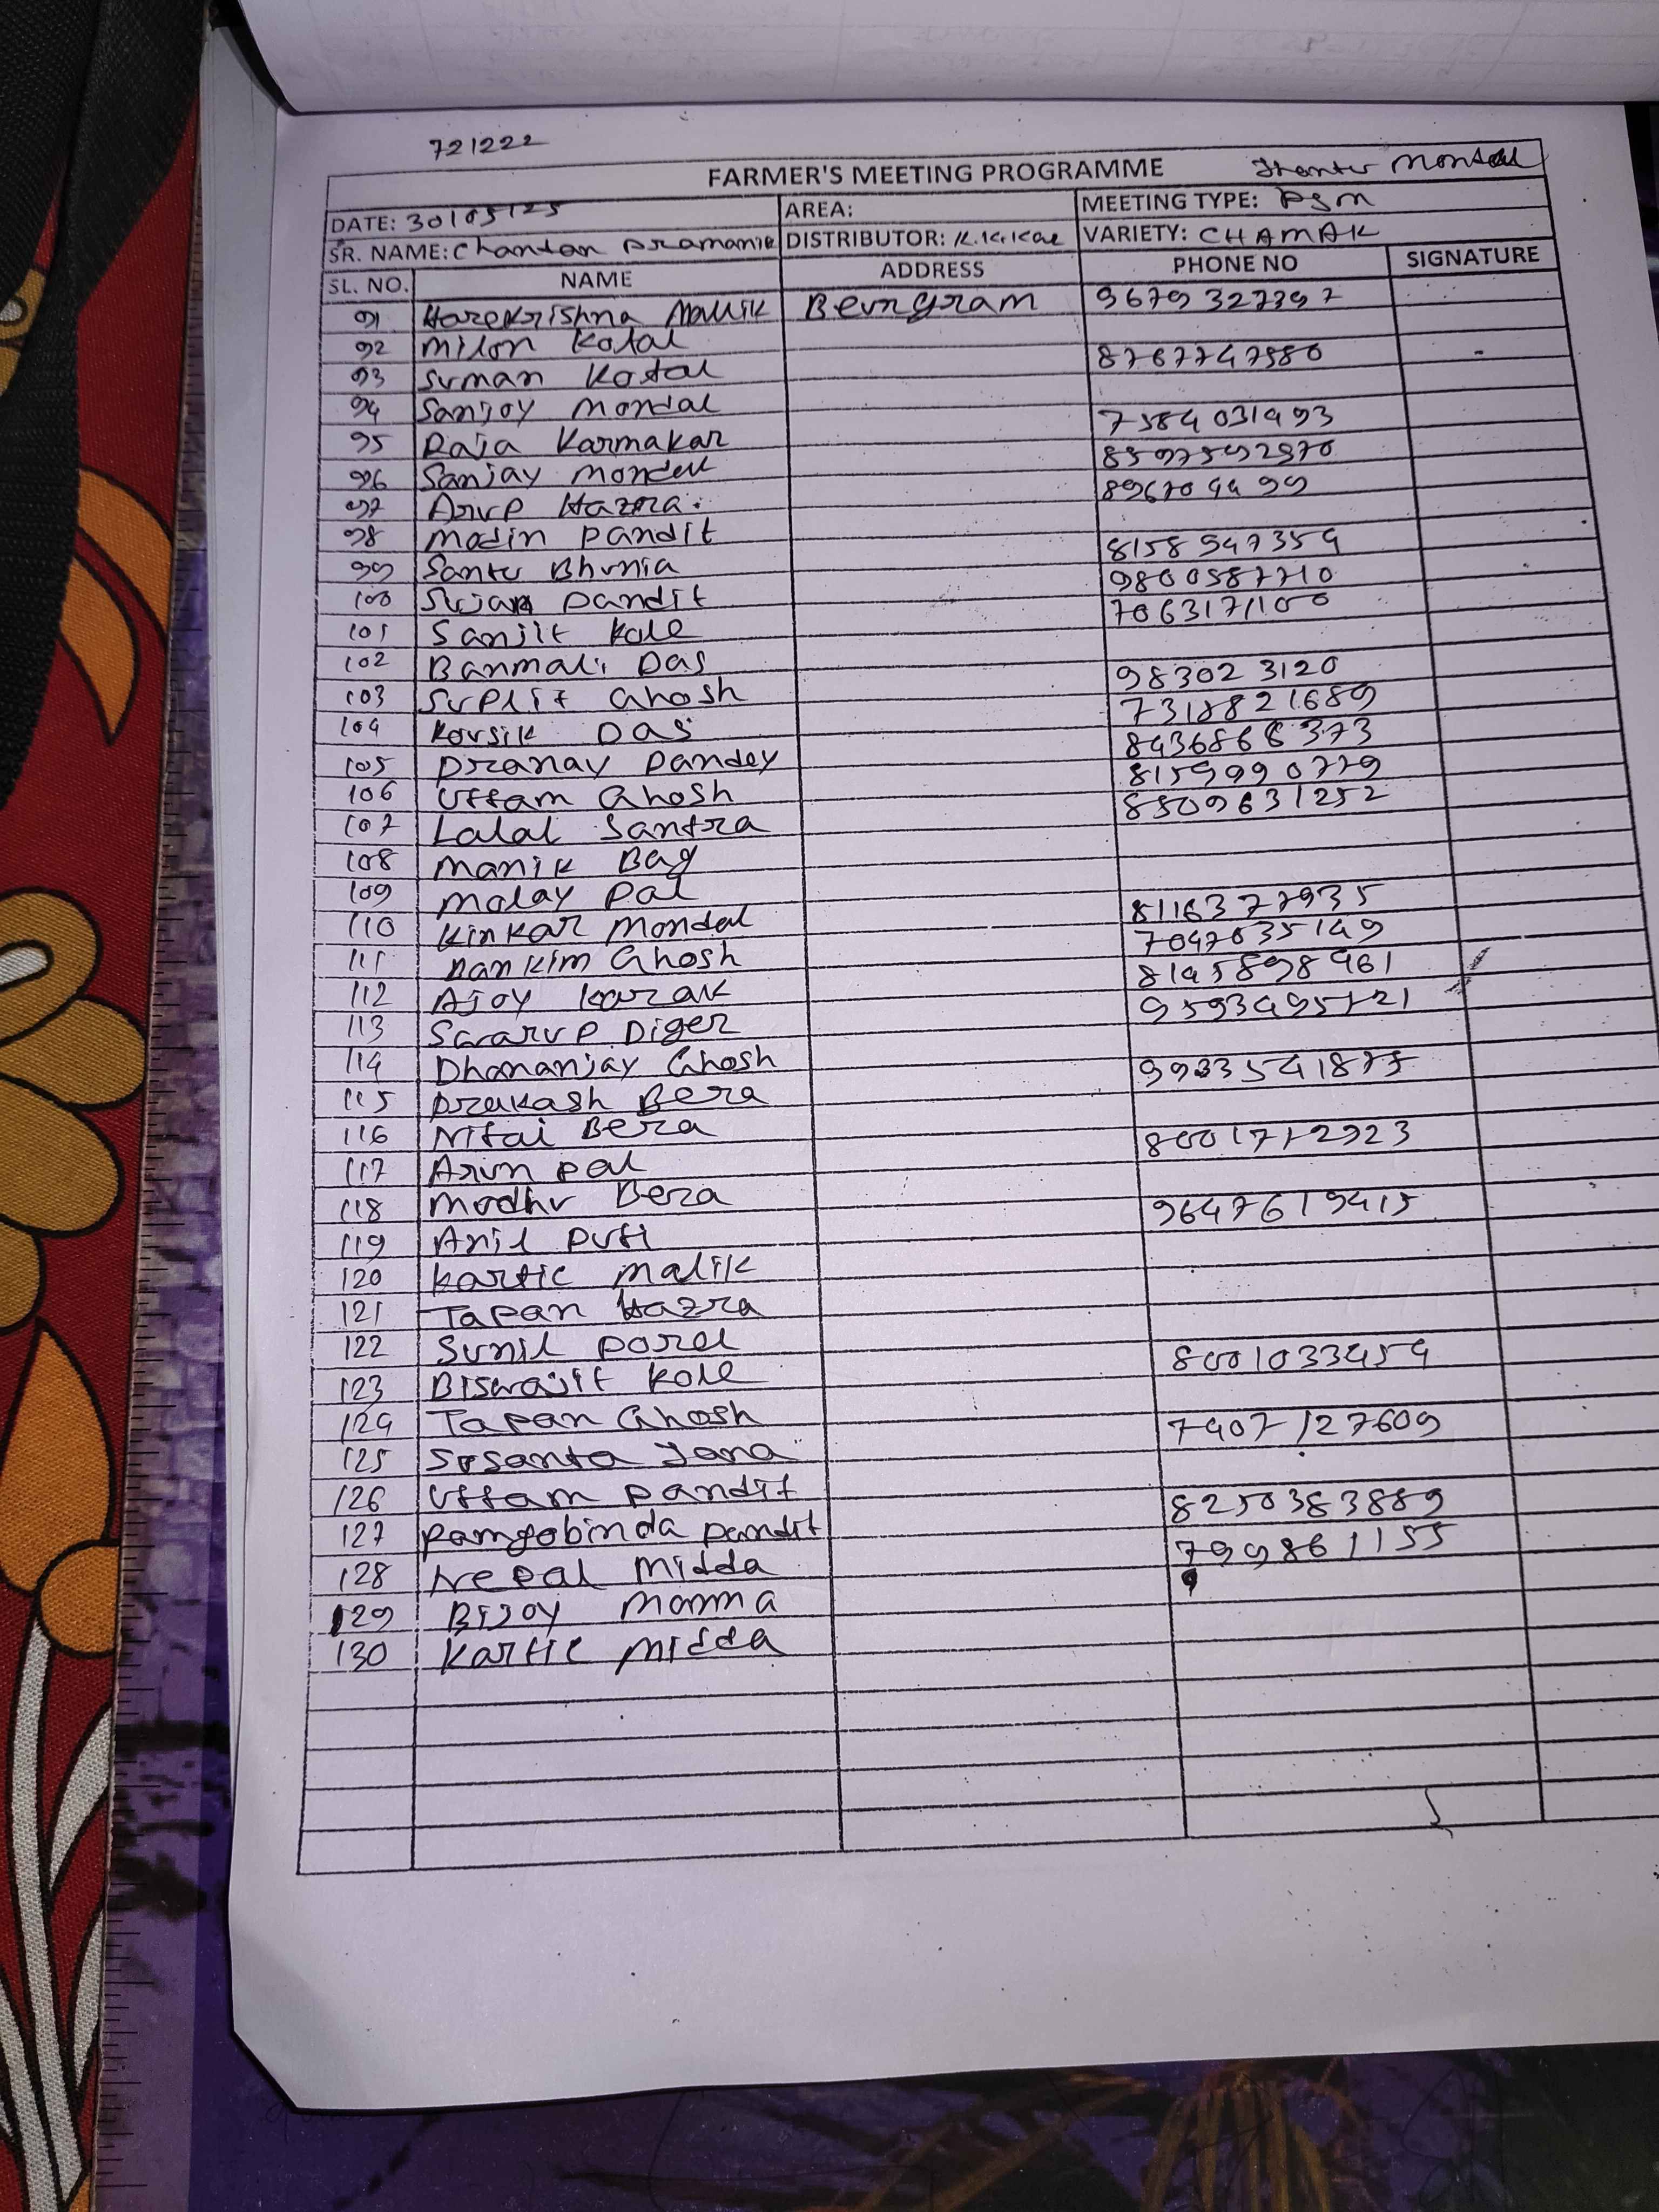 721222
FARMER'S MEETING PROGRAMME
DATE: 30/05/25 AREA: MEETING TYPE: PSM
SR. NAME: Chandan Pramanik DISTRIBUTOR: VARIETY: CHAMAK
SL. NO. NAME ADDRESS PHONE NO SIGNATURE
91 Harekrishna Mallik 9679327397
92 Milon Kotal
93 Suman Kotal 8767747980
94 Sanjoy Mondal
95 Raja Karmakar 7584031493
96 Sanjay Mondal 8597592970
97 Arup Hazra
98 Modin Pandit
99 Santu Bhunia 8158947354
100 Sujan Pandit 9800587710
101 Sanjit Kole 7063171100
102 Banmali Das
103 Suplit Ghosh 983023120
104 Kousik Das 7318821689
105 Pranay Pandey 8436868373
106 Uttam Ghosh 8159990779
107 Lalal Santra 8509631252
108 Manik Bag
109 Malay Pal
110 Kinkar Mondal 8116377935
111 Ghosh 7047635149
112 Ajoy Karak 8145898461
113 Swarup Diger
114 Dhananjay Ghosh
115 Prakash Bera
116 Nitai Bera
117 Arun Pal
118 Modhu Bera
119 Anil 9647619415
120 Kartic Malik
121 Tapan Hazra
122 Sunil Porel
123 Biswajit Kole 8001033454
124 Tapan Ghosh
125 Susanta Jana 7407127609
126 Uttam Pandit
127 Ramgobinda Pandit 8250383889
128 Nepal Midda 799861155
129 Bijoy Manna
130 Kartic Midda